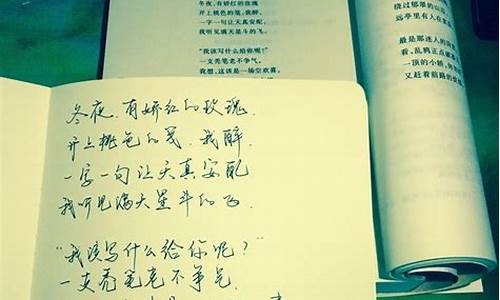 冬夜,有娇红的玫瑰
开上桃色的笺,我醉,
一字一句让天真安配,
我听见满天星斗的飞。
“我该写什么给你呢?”
一支秃笔老不争气,
我想,这该是一场空欢喜。
绕过
远亭里有人在
最是那迷人的
看,乱鸦正点破
一顶的小轿,
又赶着前路的
冬夜,有娇红的玫瑰.
开上桃色的笺.我醉
一字一句让天真安配
我听见满天星斗的飞.
“我该写什么给你呢?”
一支秃笔老不争气.